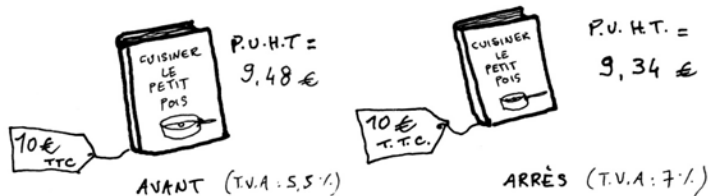 CUISINER
LE
PETIT
POIS
P.U.H.T =
9,48 €
10 €
TTC
AVANT (T.V.A : 5,5 %)
CUISINER
LE
PETIT
POIS
P.U.H.T. =
9,34 €
10 €
T.T.C.
ARRÈS (T.V.A : 7 %)